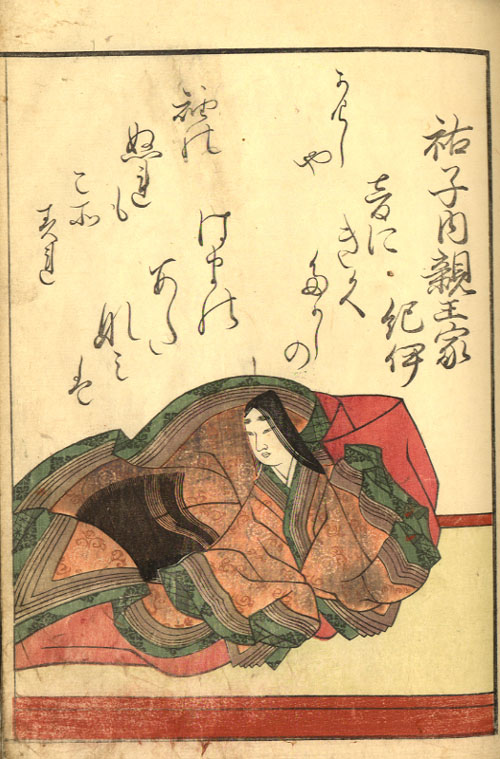 祐子内親王家
紀伊
音に
きく
たかしの
はまの
あた
なみ
は
かけし
や
袖の
ぬれも
こそ
すれ